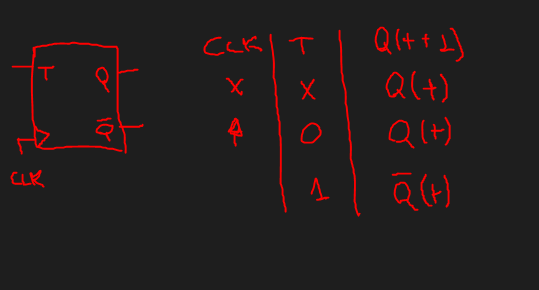 T Q
Q̅
CLK
CLK T Q(t+1)
X X Q(t)
↑ 0 Q(t)
1 Q̅(t)